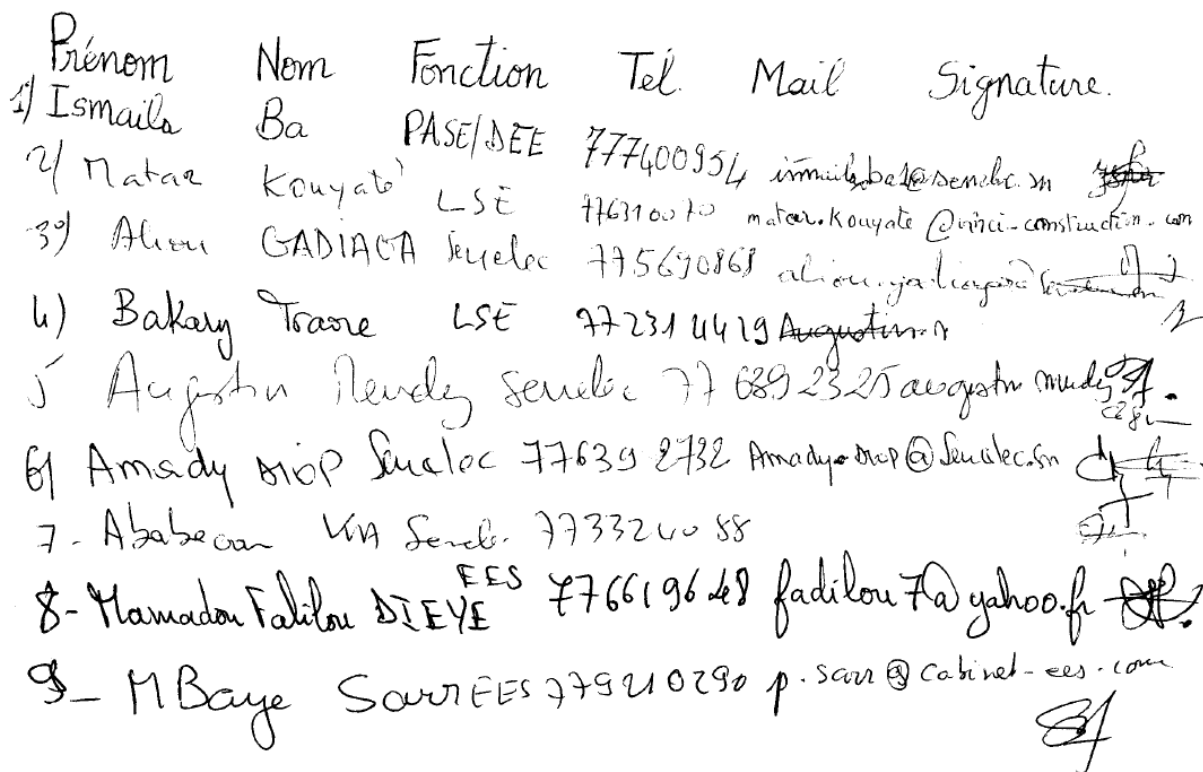 Prénom Nom Fonction Tel. Mail Signature.
1) Ismaila Ba PASE/DEE 777400954
2) Matar Kouyaté LSE 776310070 matar.kouyate@vinci-construction.com
3) Aliou GADIAGA Senelec 775690868
4) Bakary Traore LSE 772314419 Augustin
5 Augustin Mendy Senelec 77 689 23 25 augustin mendy
6) Amady DIOP Senelec 77639 2732 Amady.DIOP@Senelec.sn
7- 773324088
8- Mamadou Falilou DIEYE EES 776619648 fadilou7@yahoo.fr
9- MBaye Sarr EES 779210290 p.sarr@cabinet-ees.com